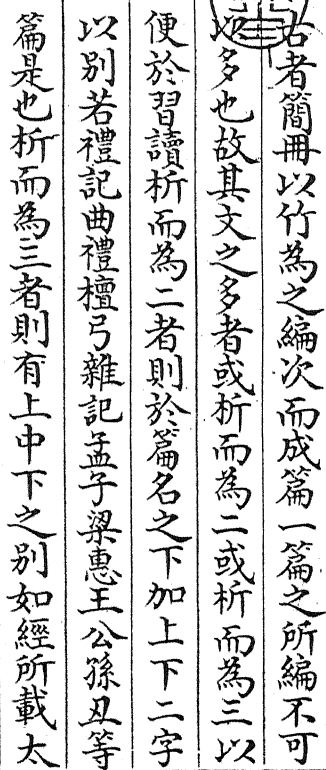 古者簡冊以竹為之編次而成篇一篇之所編不可
以多也故其文之多者或析而為二或析而為三以
便於習讀析而為二者則於篇名之下加上下二字
以別若禮記曲禮檀弓雜記孟子梁惠王公孫丑等
篇是也析而為三者則有上中下之別如經所載太